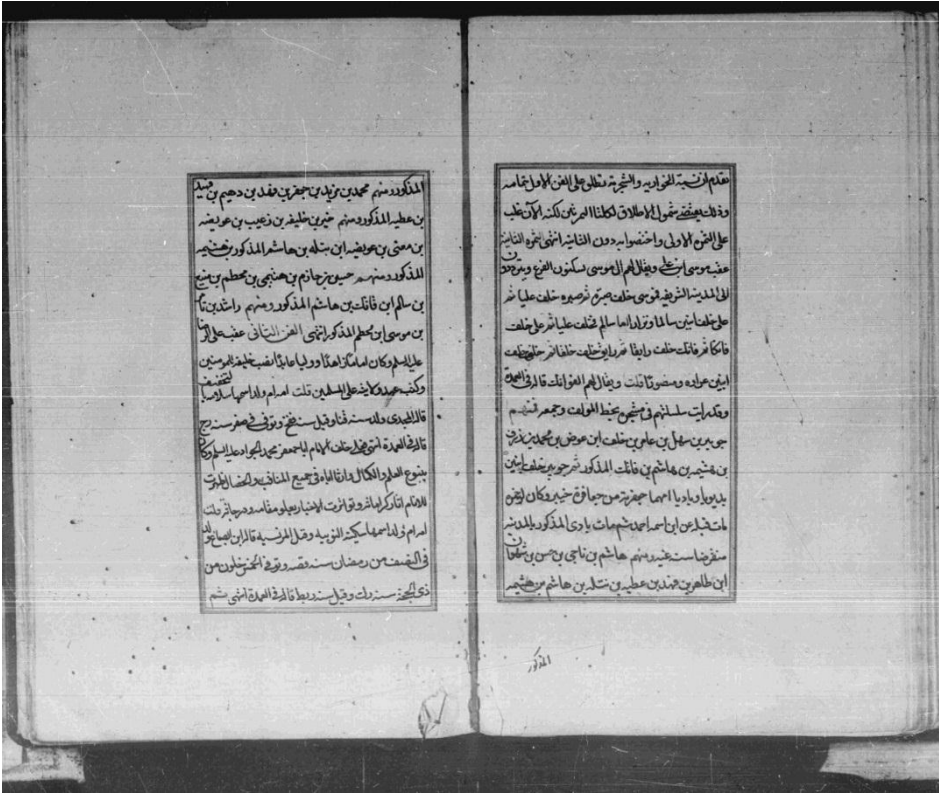 تقدم ان نسبة الخواريه والشجرية تطلق على الفن الاول بتمامه
وذلك يقتضى شمول الاطلاق لكلتا الثمرتين لكنه الآن غلب
على الثمره الاولى واختصوا به دون الثانيه انتهى الثمره الثانية
عقب موسى ابن على ويقال لهم ال موسى يسكنون الفرع ويترددون
الى المدينه الشريفه فموسى خلف صبره ثم صبره خلف عليا ثم
على خلف ابنين سالما و ثم سالم خلف عليا ثم على خلف
فاتكا ثم فاتك خلف رايقا ثم رايق خلف خلفا ثم خلف خلف
ابنين عواده ومنصورا قلت ويقال لهم الفواتك قاله في العمدة
وقد رات سلسلتهم في مشجره بخط المولف وجمعه فمنهم
جويبر بن سهل بن عامر بن خلف ابن عوض بن محمد بن
بن هشيمه بن هاشم بن فاتك المذكور ثم جويبر خلف ابنين
بديويا وباديا امهما جعفرية من جعافرة خيبر وكان لوفوه
مات قبله عن ابن اسمه احمد ثم مات بادى المذكور بالمدينه
منقرضا سنه ومنهم هاشم بن ناجى بن حسن بن شهوان
ابن طاهر بن فهد بن عطيه بن سله بن هاشم بن هشيمه
المذكور
المذكور ومنهم محمد بن مزيد بن جعفر بن فقد بن دهيم بن
بن عطيه المذكور ومنهم خير بن خليفه بن زعيب بن عويضه
بن معنى بن عويضه ابن سله بن هاشم المذكور بن هشيمه
المذكور ومنهم حسين بن حازم بن هنيجى بن محطم بن منيع
بن سالم ابن فاتك بن هاشم المذكور ومنهم راشد بن
بن موسى ابن محطم المذكور انتهى الفن الثانى عقب على الرضا
عليه السلم وكان اماما زاهدا و وليا عابدا نصب خليفه المومنين
وكتب عهد وكايته على المسلمين قلت امه ام ولد اسمها سلامه بالتخفيف
قاله المجدى ولد سنه قنا وقيل سنه قنح وتوفى في صفر سنه رج
قاله في العمدة انتهى خلف الامام ابا جعفر محمد الجواد عليه السلم وكان
ينبوع العلم والكمال وارثا اباه في جميع المناقب والخصال ظهرت
للانام اثار كراماته وتواترت الاخبار بعلو مقاماته قلت
امه ام ولد اسمها سكينه النوبيه وقيل المرسيه قاله ابن الصباغ ولد
في النصف من رمضان سنه قصه وتوفى لخمس خلون من
ذى الحجة سنه رك وقيل سنه ريط قاله في العمدة انتهى ثم